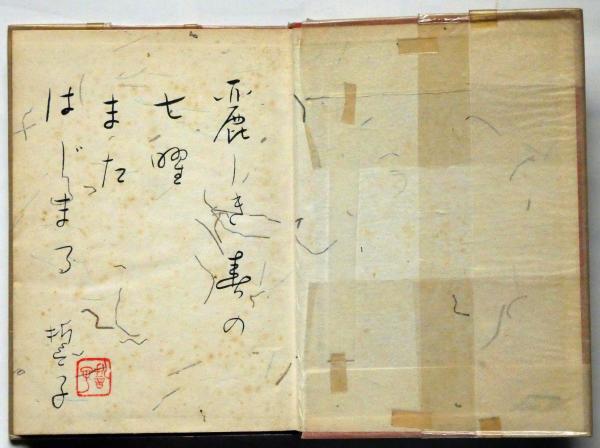 麗しき春の
七曜
また
はじまる
誓子